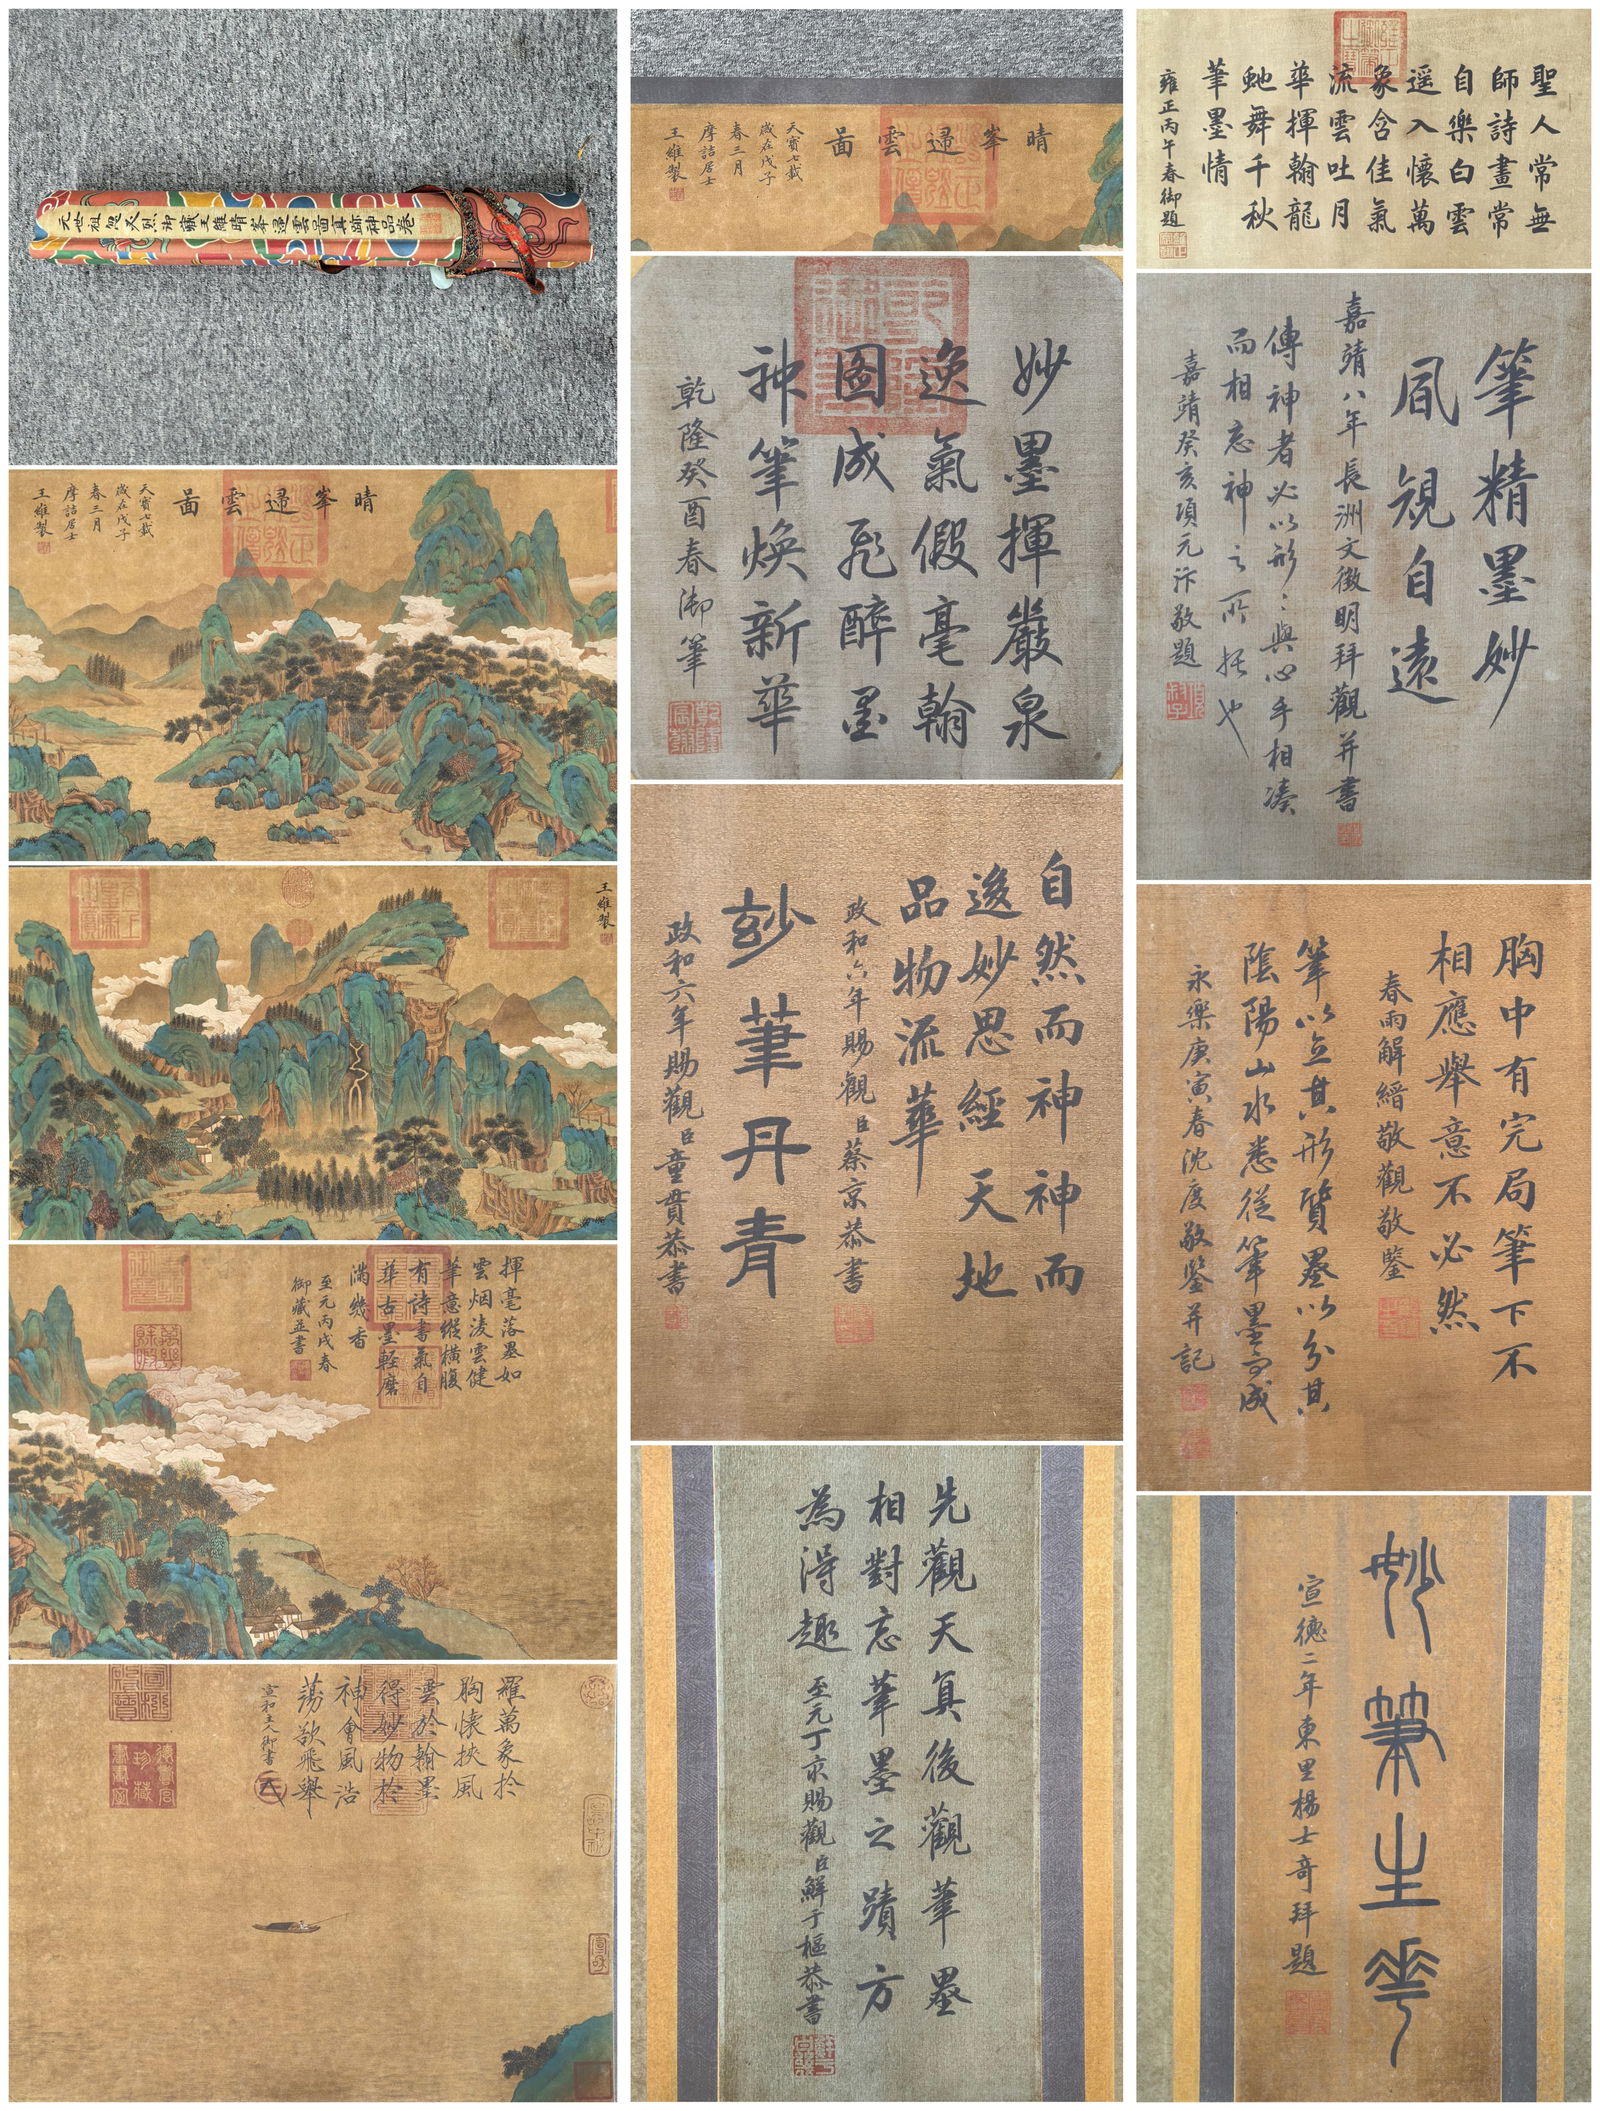 元世祖忽必烈御藏王維晴峯遝雲啚真跡神品卷
晴峯遝雲啚
天寶七載
歲在戊子
春三月
摩詰居士
王維製
王維製
揮毫落墨如
雲烟淩雲健
筆意縱橫腹
有詩書氣自
華古墨輕磨
滿幾香
至元丙戌春
御藏並書
羅萬象於
胸懷挾風
雲於翰墨
得妙物於
神會風浩
蕩欲飛舉
宣和主人御書
晴峯遝雲啚
天寶七載
歲在戊子
春三月
摩詰居士
王維製
妙墨揮巖泉
逸氣假毫翰
图成飛醉墨
神筆煥新華
乾隆癸酉春御筆
自然而神神而
逡妙思經天地
品物流華
政和六年賜觀臣蔡京恭書
玅筆丹青
政和六年賜觀臣童貫恭書
先觀天真後觀筆墨
相對忘筆墨之蹟方
為得趣
至元丁亥賜觀臣鮮于樞恭書
聖人常無
師詩畫常
自樂白雲
遥入懷萬
象含佳氣
流雲吐月
華揮翰龍
虵舞千秋
筆墨情
雍正丙午春御題
筆精墨妙
風規自遠
嘉靖八年長洲文徵明拜觀并書
傳神者必以形形與心手相湊
而相忘神之所托也
嘉靖癸亥項元汴敬題
胸中有完局筆下不
相應舉意不必然
春雨解縉敬觀敬鑒
筆以立其形質墨以分其
陰陽山水悉從筆墨而成
永樂庚寅春沈度敬鑒并記
妙筆生花
宣德二年東里楊士奇拜題